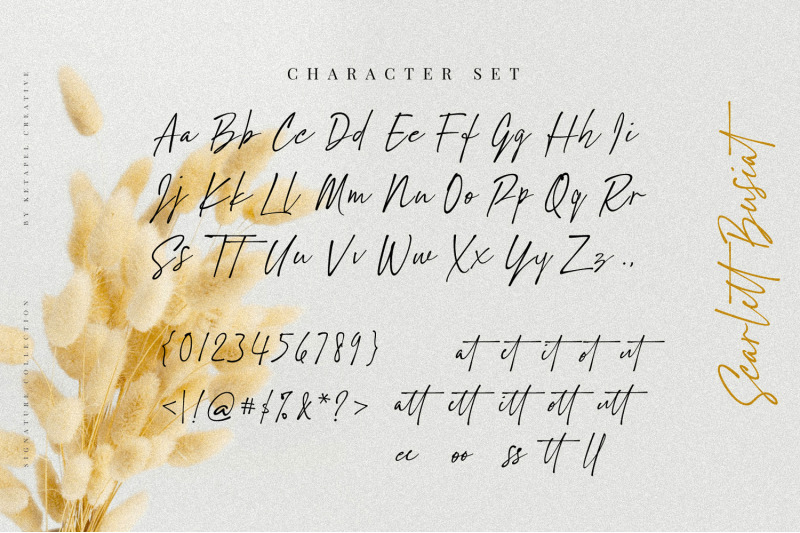 CHARACTER SET
Aa Bb Cc Dd Ee Ff Gg Hh Ii
Jj Kk Ll Mm Nn Oo Pp Qq Rr
Ss Tt Uu Vv Ww Xx Yy Zz .,
{0123456789}
<\!@#$%&*?>
at et it ot ut
att ett itt ott utt
ee oo ss tt ll
BY KETAPEL CREATIVE
SIGNATURE COLLECTION
Scarlett Busiat